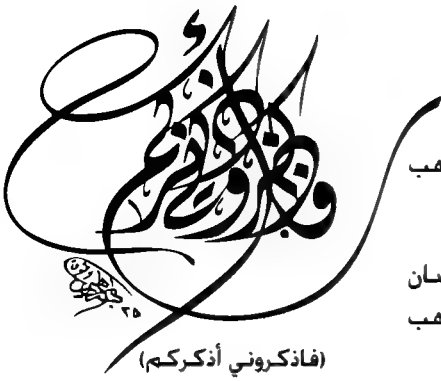 فاذكروني أذكركم
٢٥
هب
سان
هب
(فاذكروني أذكركم)